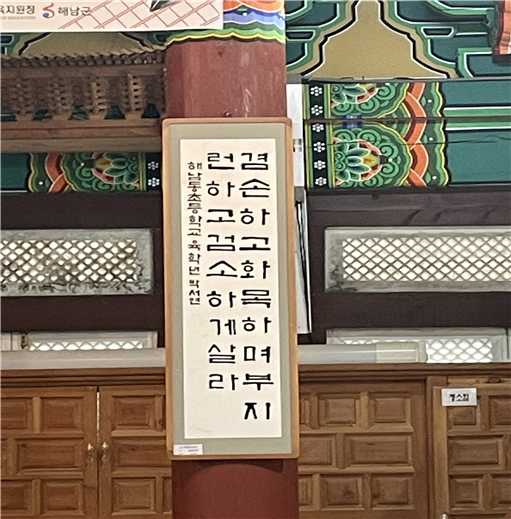 육지원청
해남군
겸손하고화목하며부지
런하고검소하게살라
해남동초등학교육학년박서연